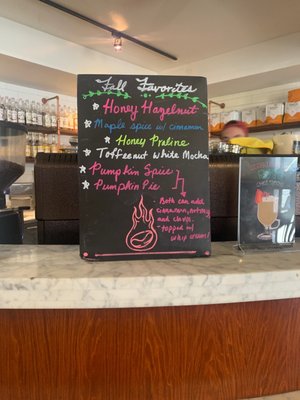 Fall Favorites
Honey Hazelnut
Maple spice w/ cinnamon
Honey Praline
Toffeenut White Mocha
Pumpkin Spice
Pumpkin Pie
- Both can add
cinnamon, nutmeg
and cloves.
- topped w/
whip cream!